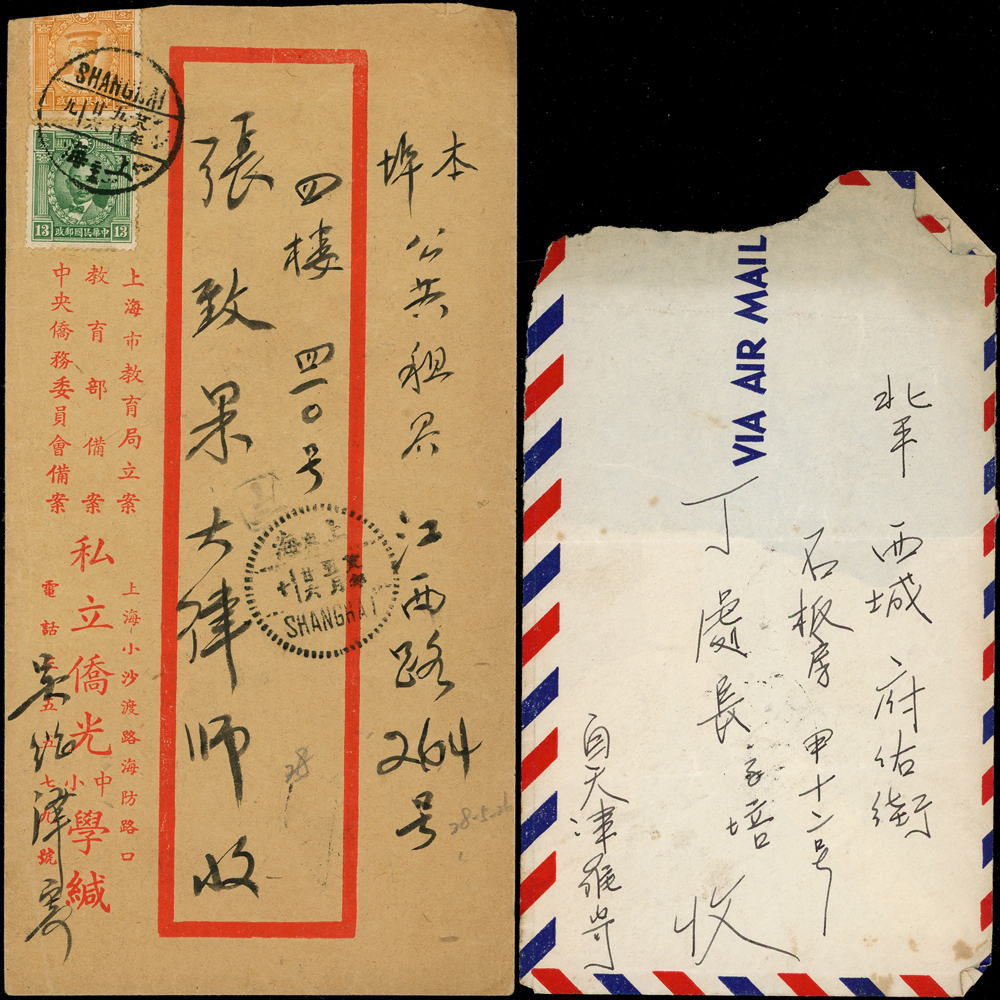 本埠公共租界江西路264号
四樓四一〇号
張致果大律師收
上海市教育局立案
教育部備案
中央僑務委員會備案
上海小沙渡路海防路口
私立僑光中小學緘
電話三五五七九號
寄
SHANGHAI
上海
1
13 政郵國民華中 13
上海
SHANGHAI
28
28-5-26
VIA AIR MAIL
北平西城府佑街
石板房甲十二号
丁處長
收
自天津